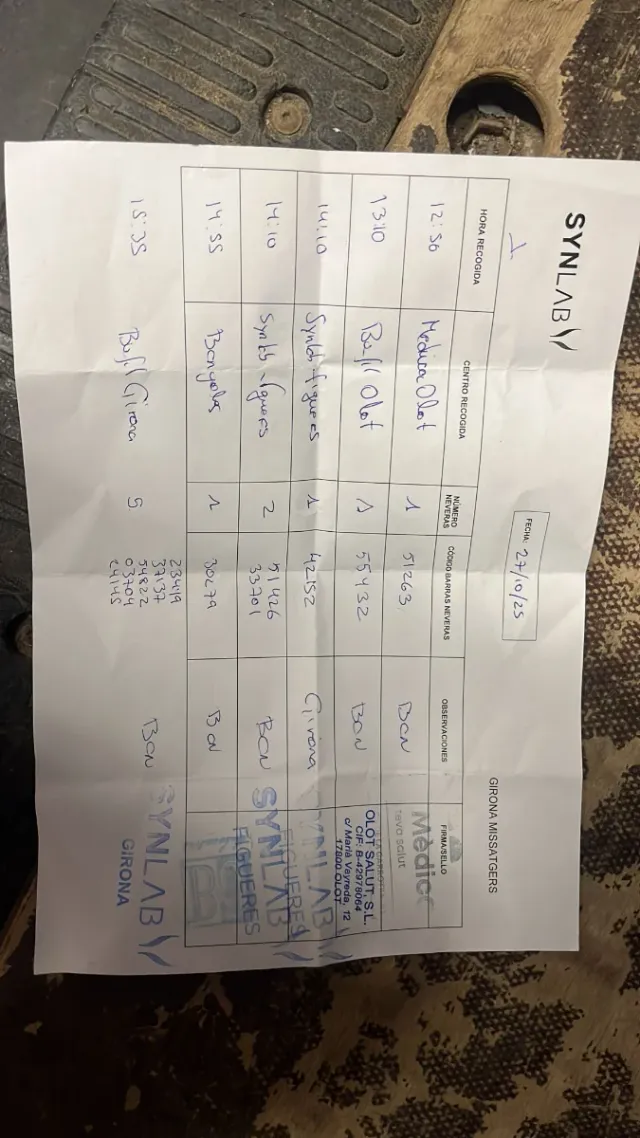 SYNLAB
1
FECHA: 27/10/25
GIRONA MISSATGERS
HORA RECOGIDA CENTRO RECOGIDA NÚMERO NEVERAS CÓDIGO BARRAS NEVERAS OBSERVACIONES FIRMA/SELLO
12:50 Medica Olot 1 51263 BCN Mèdic
teva salut
13:10 Bufll Olot 1 55432 BCN OLOT SALUT, S.L.
CIF: B-42978064
c/ Marià Vayreda, 12
17800 OLOT
14:10 Synlab figueres 1 42152 Girona SYNLAB
FIGUERES
14:10 Synlab figueres 2 51426
33701 BCN SYNLAB
FIGUERES
14:55 Banyoles 1 30279 BCN
15:35 Bufll Girona 5 23419
37137
54822
03704
24145 BCN SYNLAB
GIRONA